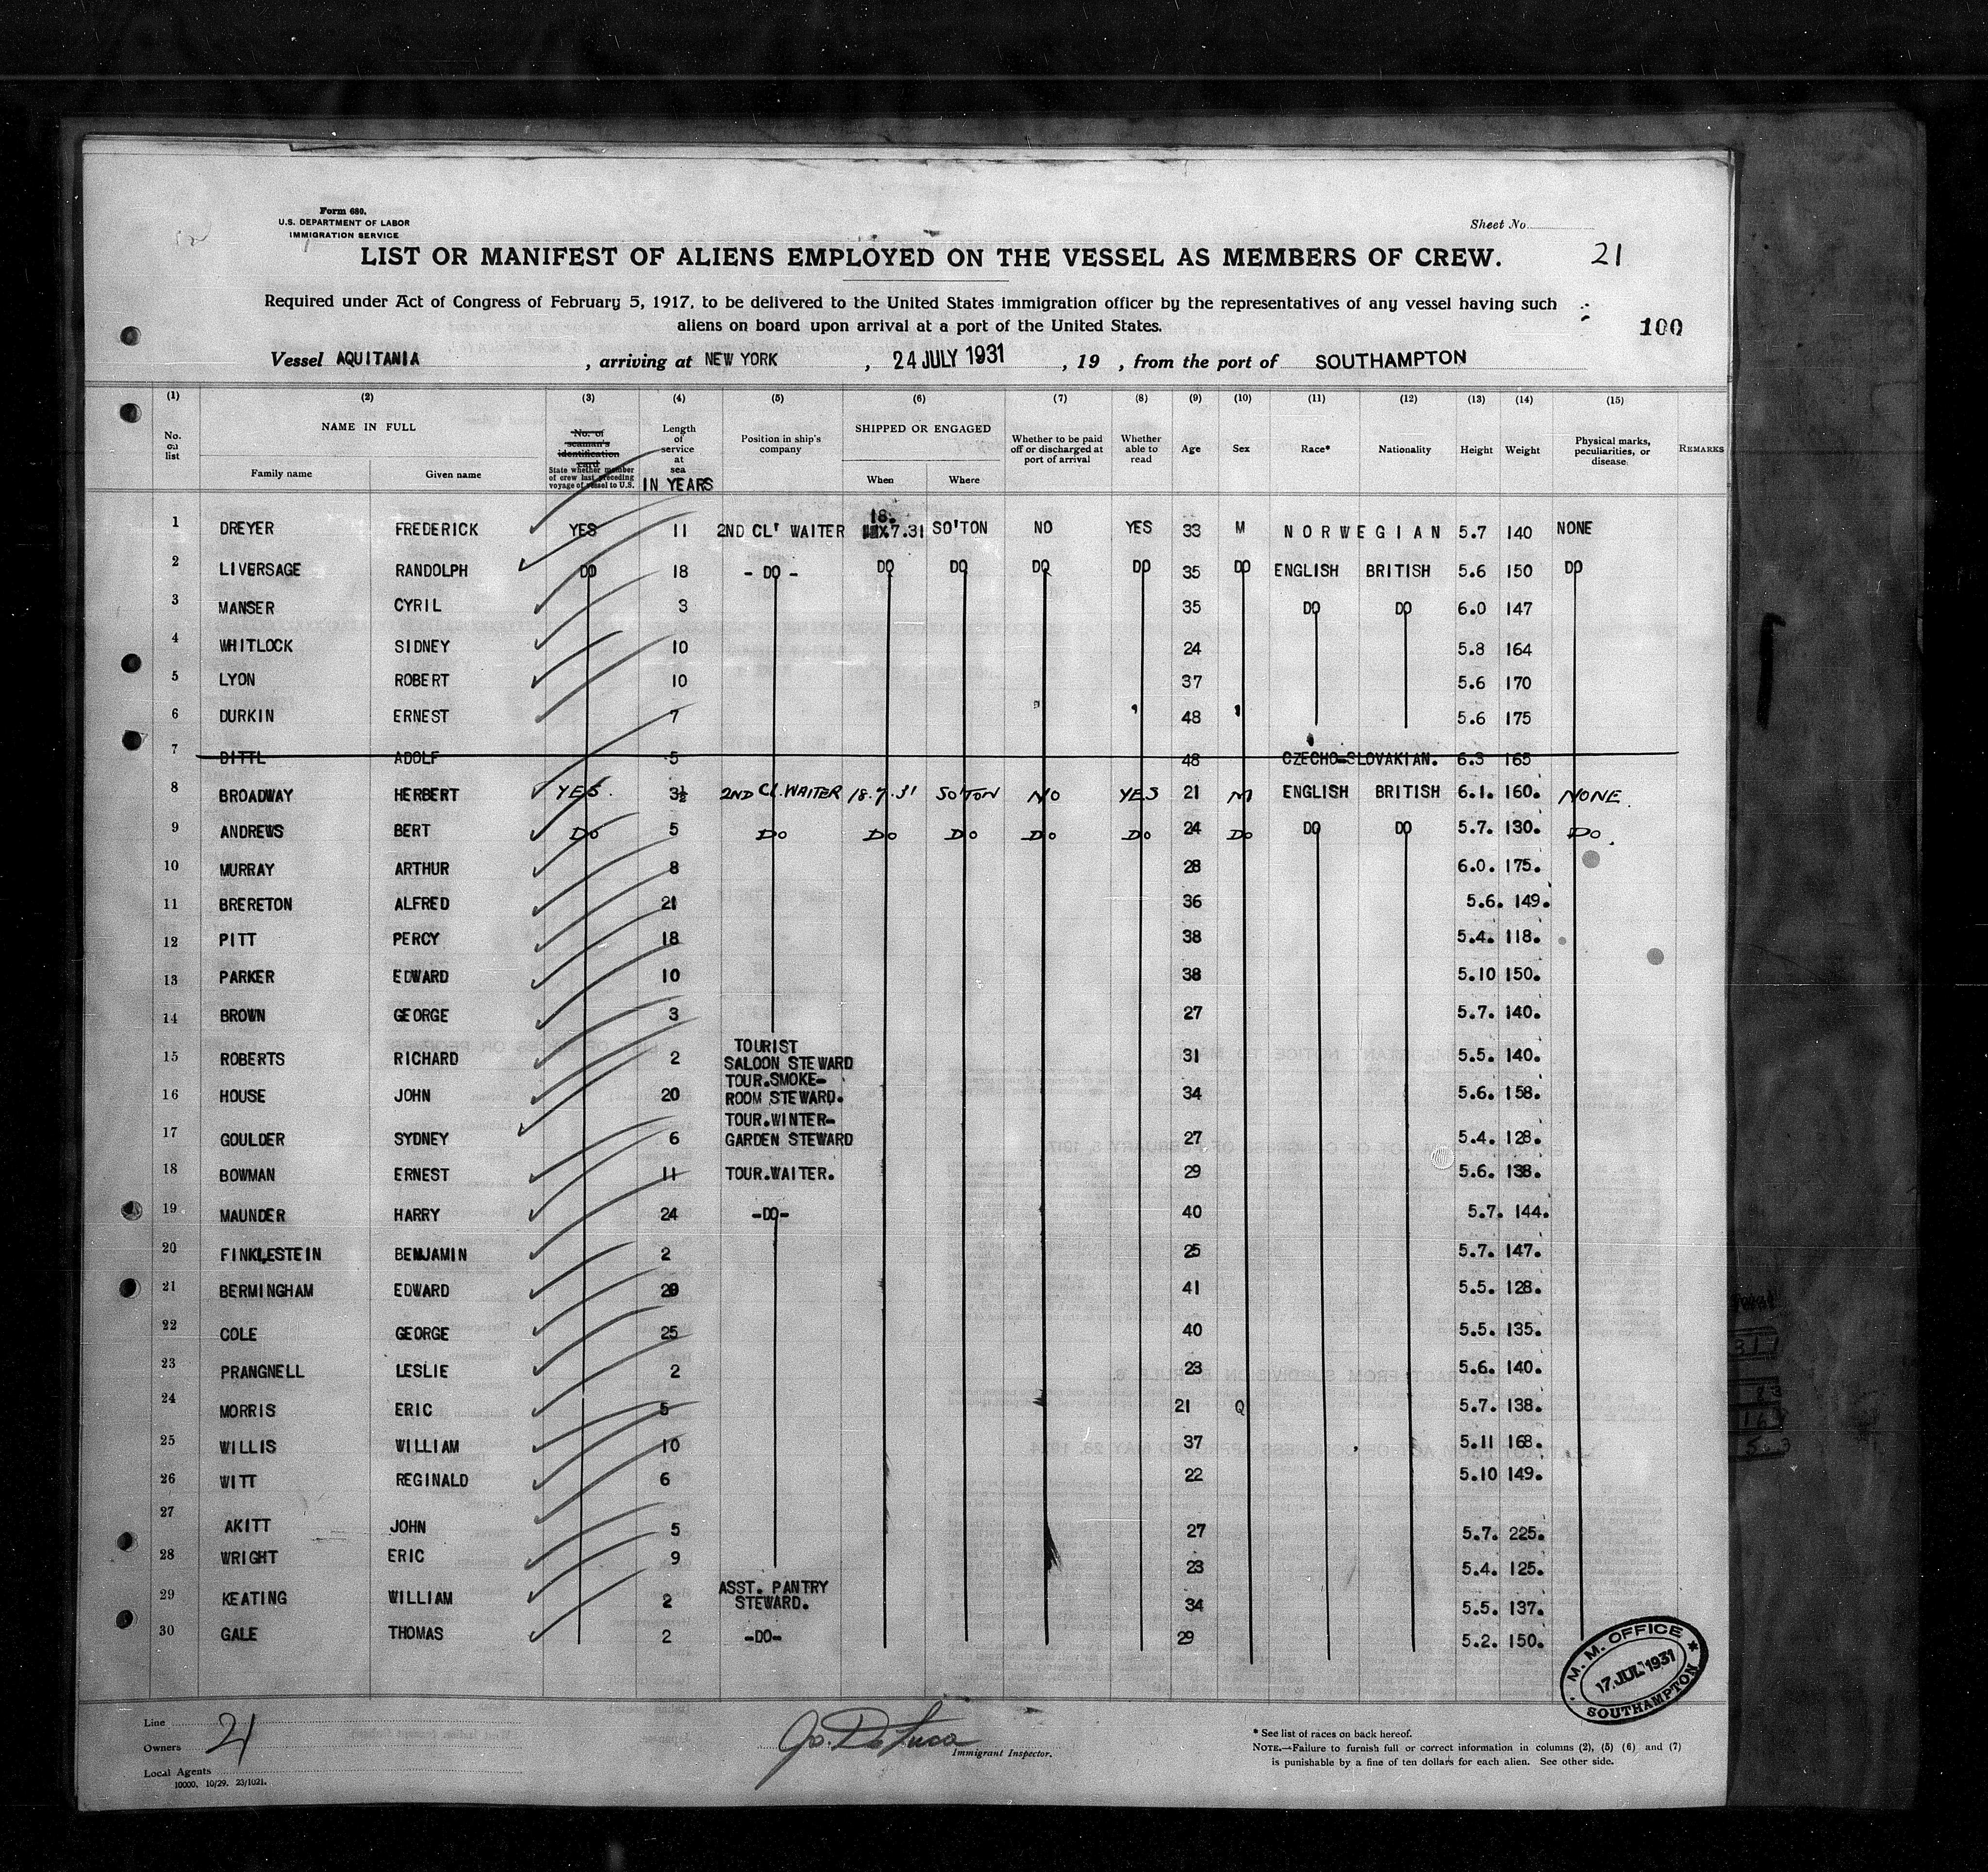 Form 680.
U.S. DEPARTMENT OF LABOR
IMMIGRATION SERVICE
Sheet No.
LIST OR MANIFEST OF ALIENS EMPLOYED ON THE VESSEL AS MEMBERS OF CREW.
21
Required under Act of Congress of February 5, 1917, to be delivered to the United States immigration officer by the representatives of any vessel having such
aliens on board upon arrival at a port of the United States.
100
Vessel AQUITANIA , arriving at NEW YORK , 24 JULY 1931 , 19 , from the port of SOUTHAMPTON
(1) (2) (3) (4) (5) (6) (7) (8) (9) (10) (11) (12) (13) (14) (15)
No. on list
NAME IN FULL
Family name Given name
No. of seaman's identification card
State whether member of crew last preceding voyage of vessel to U.S.
Length of service at sea
IN YEARS
Position in ship's company
SHIPPED OR ENGAGED
When Where
Whether to be paid off or discharged at port of arrival
Whether able to read
Age Sex Race* Nationality Height Weight
Physical marks, peculiarities, or disease
REMARKS
1 DREYER FREDERICK YES 11 2ND CL' WAITER 18.7.31 SO'TON NO YES 33 M NORWEGIAN 5.7 140 NONE
2 LIVERSAGE RANDOLPH DO 18 - DO - DO DO DO DO 35 DO ENGLISH BRITISH 5.6 150 DO
3 MANSER CYRIL 3 35 DO DO 6.0 147
4 WHITLOCK SIDNEY 10 24 5.8 164
5 LYON ROBERT 10 37 5.6 170
6 DURKIN ERNEST 7 48 5.6 175
7 DITTL ADOLF 5 48 CZECHO=SLOVAKIAN. 6.3 165
8 BROADWAY HERBERT YES. 3½ 2ND CL. WAITER 18.7.31 SO'TON NO YES 21 M ENGLISH BRITISH 6.1. 160. NONE.
9 ANDREWS BERT DO 5 DO DO DO DO DO 24 DO DO DO 5.7. 130. DO.
10 MURRAY ARTHUR 8 28 6.0. 175.
11 BRERETON ALFRED 21 36 5.6. 149.
12 PITT PERCY 18 38 5.4. 118.
13 PARKER EDWARD 10 38 5.10 150.
14 BROWN GEORGE 3 27 5.7. 140.
15 ROBERTS RICHARD 2 TOURIST SALOON STEWARD 31 5.5. 140.
16 HOUSE JOHN 20 TOUR.SMOKE- ROOM STEWARD. 34 5.6. 158.
17 GOULDER SYDNEY 6 TOUR.WINTER- GARDEN STEWARD 27 5.4. 128.
18 BOWMAN ERNEST 11 TOUR.WAITER. 29 5.6. 138.
19 MAUNDER HARRY 24 -DO- 40 5.7. 144.
20 FINKLESTEIN BENJAMIN 2 25 5.7. 147.
21 BERMINGHAM EDWARD 41 5.5. 128.
22 COLE GEORGE 25 40 5.5. 135.
23 PRANGNELL LESLIE 2 23 5.6. 140.
24 MORRIS ERIC 5 21 5.7. 138.
25 WILLIS WILLIAM 10 37 5.11 168.
26 WITT REGINALD 6 22 5.10 149.
27 AKITT JOHN 5 27 5.7. 225.
28 WRIGHT ERIC 9 23 5.4. 125.
29 KEATING WILLIAM 2 ASST. PANTRY STEWARD. 34 5.5. 137.
30 GALE THOMAS 2 -DO- 29 5.2. 150.
M. M. OFFICE
17 JUL 1931
SOUTHAMPTON
Line
Owners
21
Local Agents
10000. 10/29. 23/1021.
Jo. De Luca
Immigrant Inspector.
* See list of races on back hereof.
NOTE.—Failure to furnish full or correct information in columns (2), (5) (6) and (7)
is punishable by a fine of ten dollars for each alien. See other side.